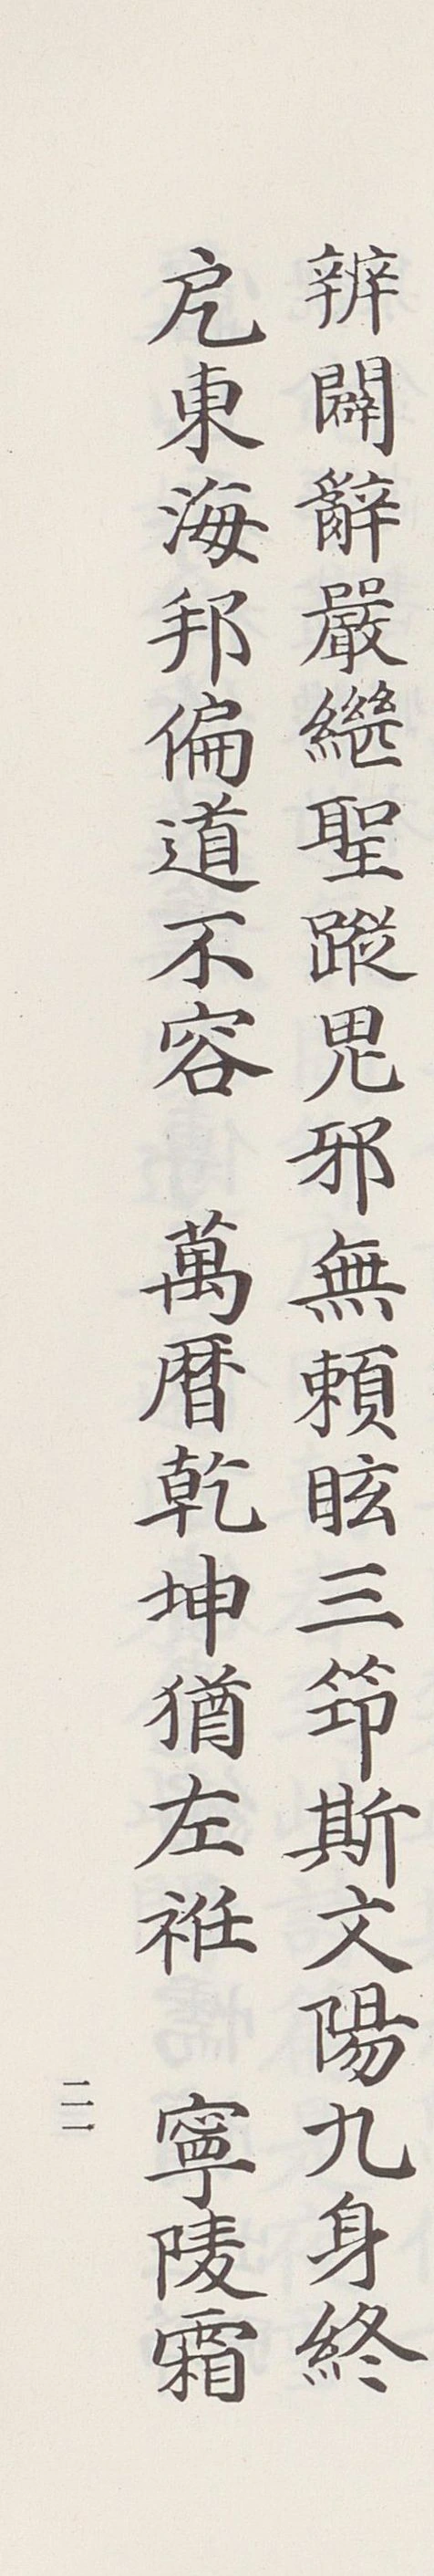 辨闢辭嚴繼聖蹤邪無賴眩三笻斯文陽九身終
戹東海邦偏道不容　萬暦乾坤猶左袵　寧陵霜
二一一